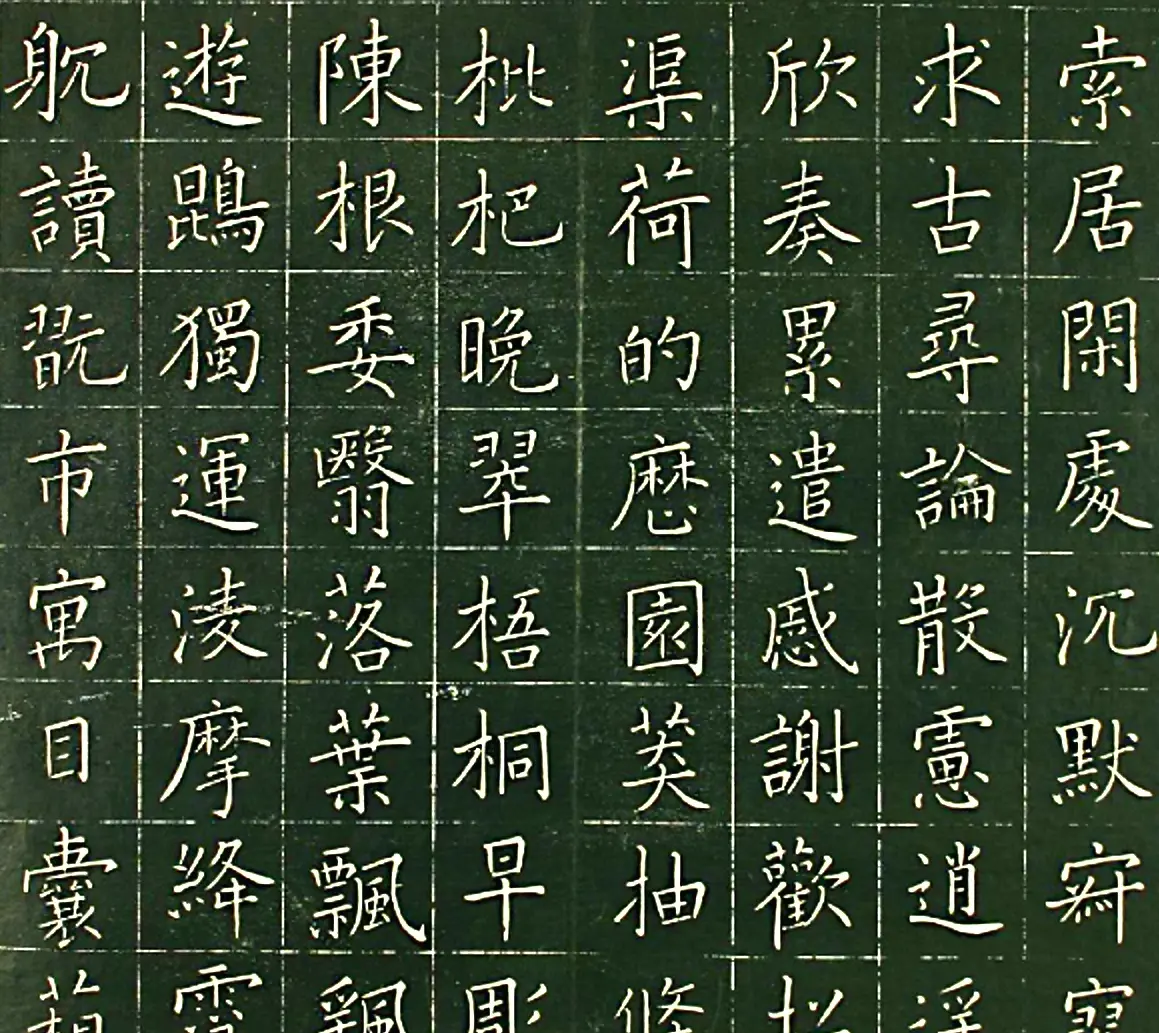 索居閑處沉默寂寥
求古尋論散慮逍遙
欣奏累遣慼謝歡招
渠荷的歷園莽抽條
枇杷晚翠梧桐早彫
陳根委翳落葉飄颻
遊鵾獨運淩摩絳霄
躭讀翫市寓目囊箱